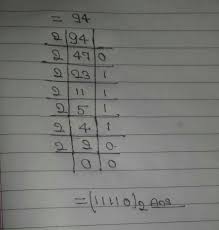 = 94
2 | 94
2 | 47 | 0
2 | 23 | 1
2 | 11 | 1
2 | 5 | 1
2 | 4 | 1
2 | 2 | 0
0 | 0
=(11110)2 Ans